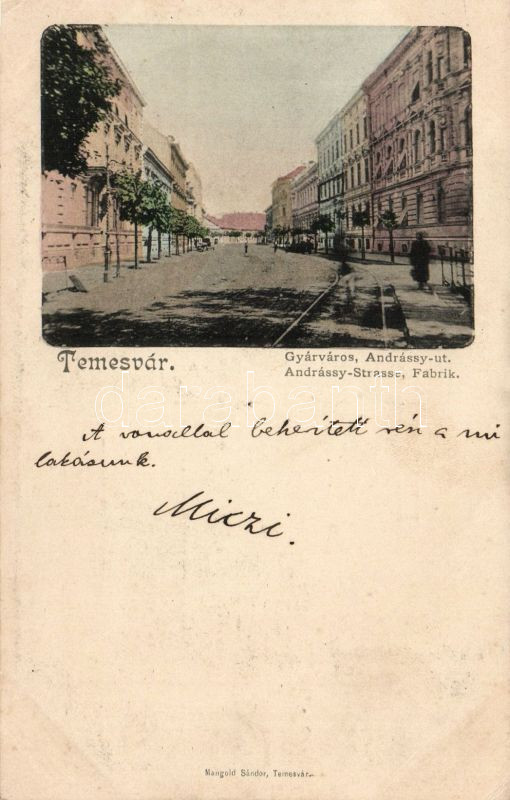 Temesvár.
Gyárváros, Andrássy-ut.
Andrássy-Strasse, Fabrik.
databanth
A vonallal bekerített rész a mi
lakásunk.
Miczi.
Mangold Sándor, Temesvár.